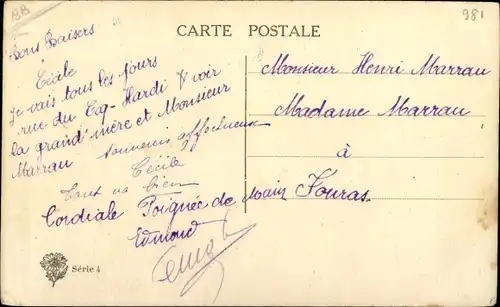 88
981
CARTE POSTALE
Bons Baisers
Cécile
Je vais tous les jours
rue du Coq-Hardi voir
la grand'mère et Monsieur
Marrau
Souvenirs affectueux
Cécile
Tout va bien
Cordiale Poignée de main
Edmond
Monsieur Henri Marrau
Madame Marrau
à
Fouras
Série 4